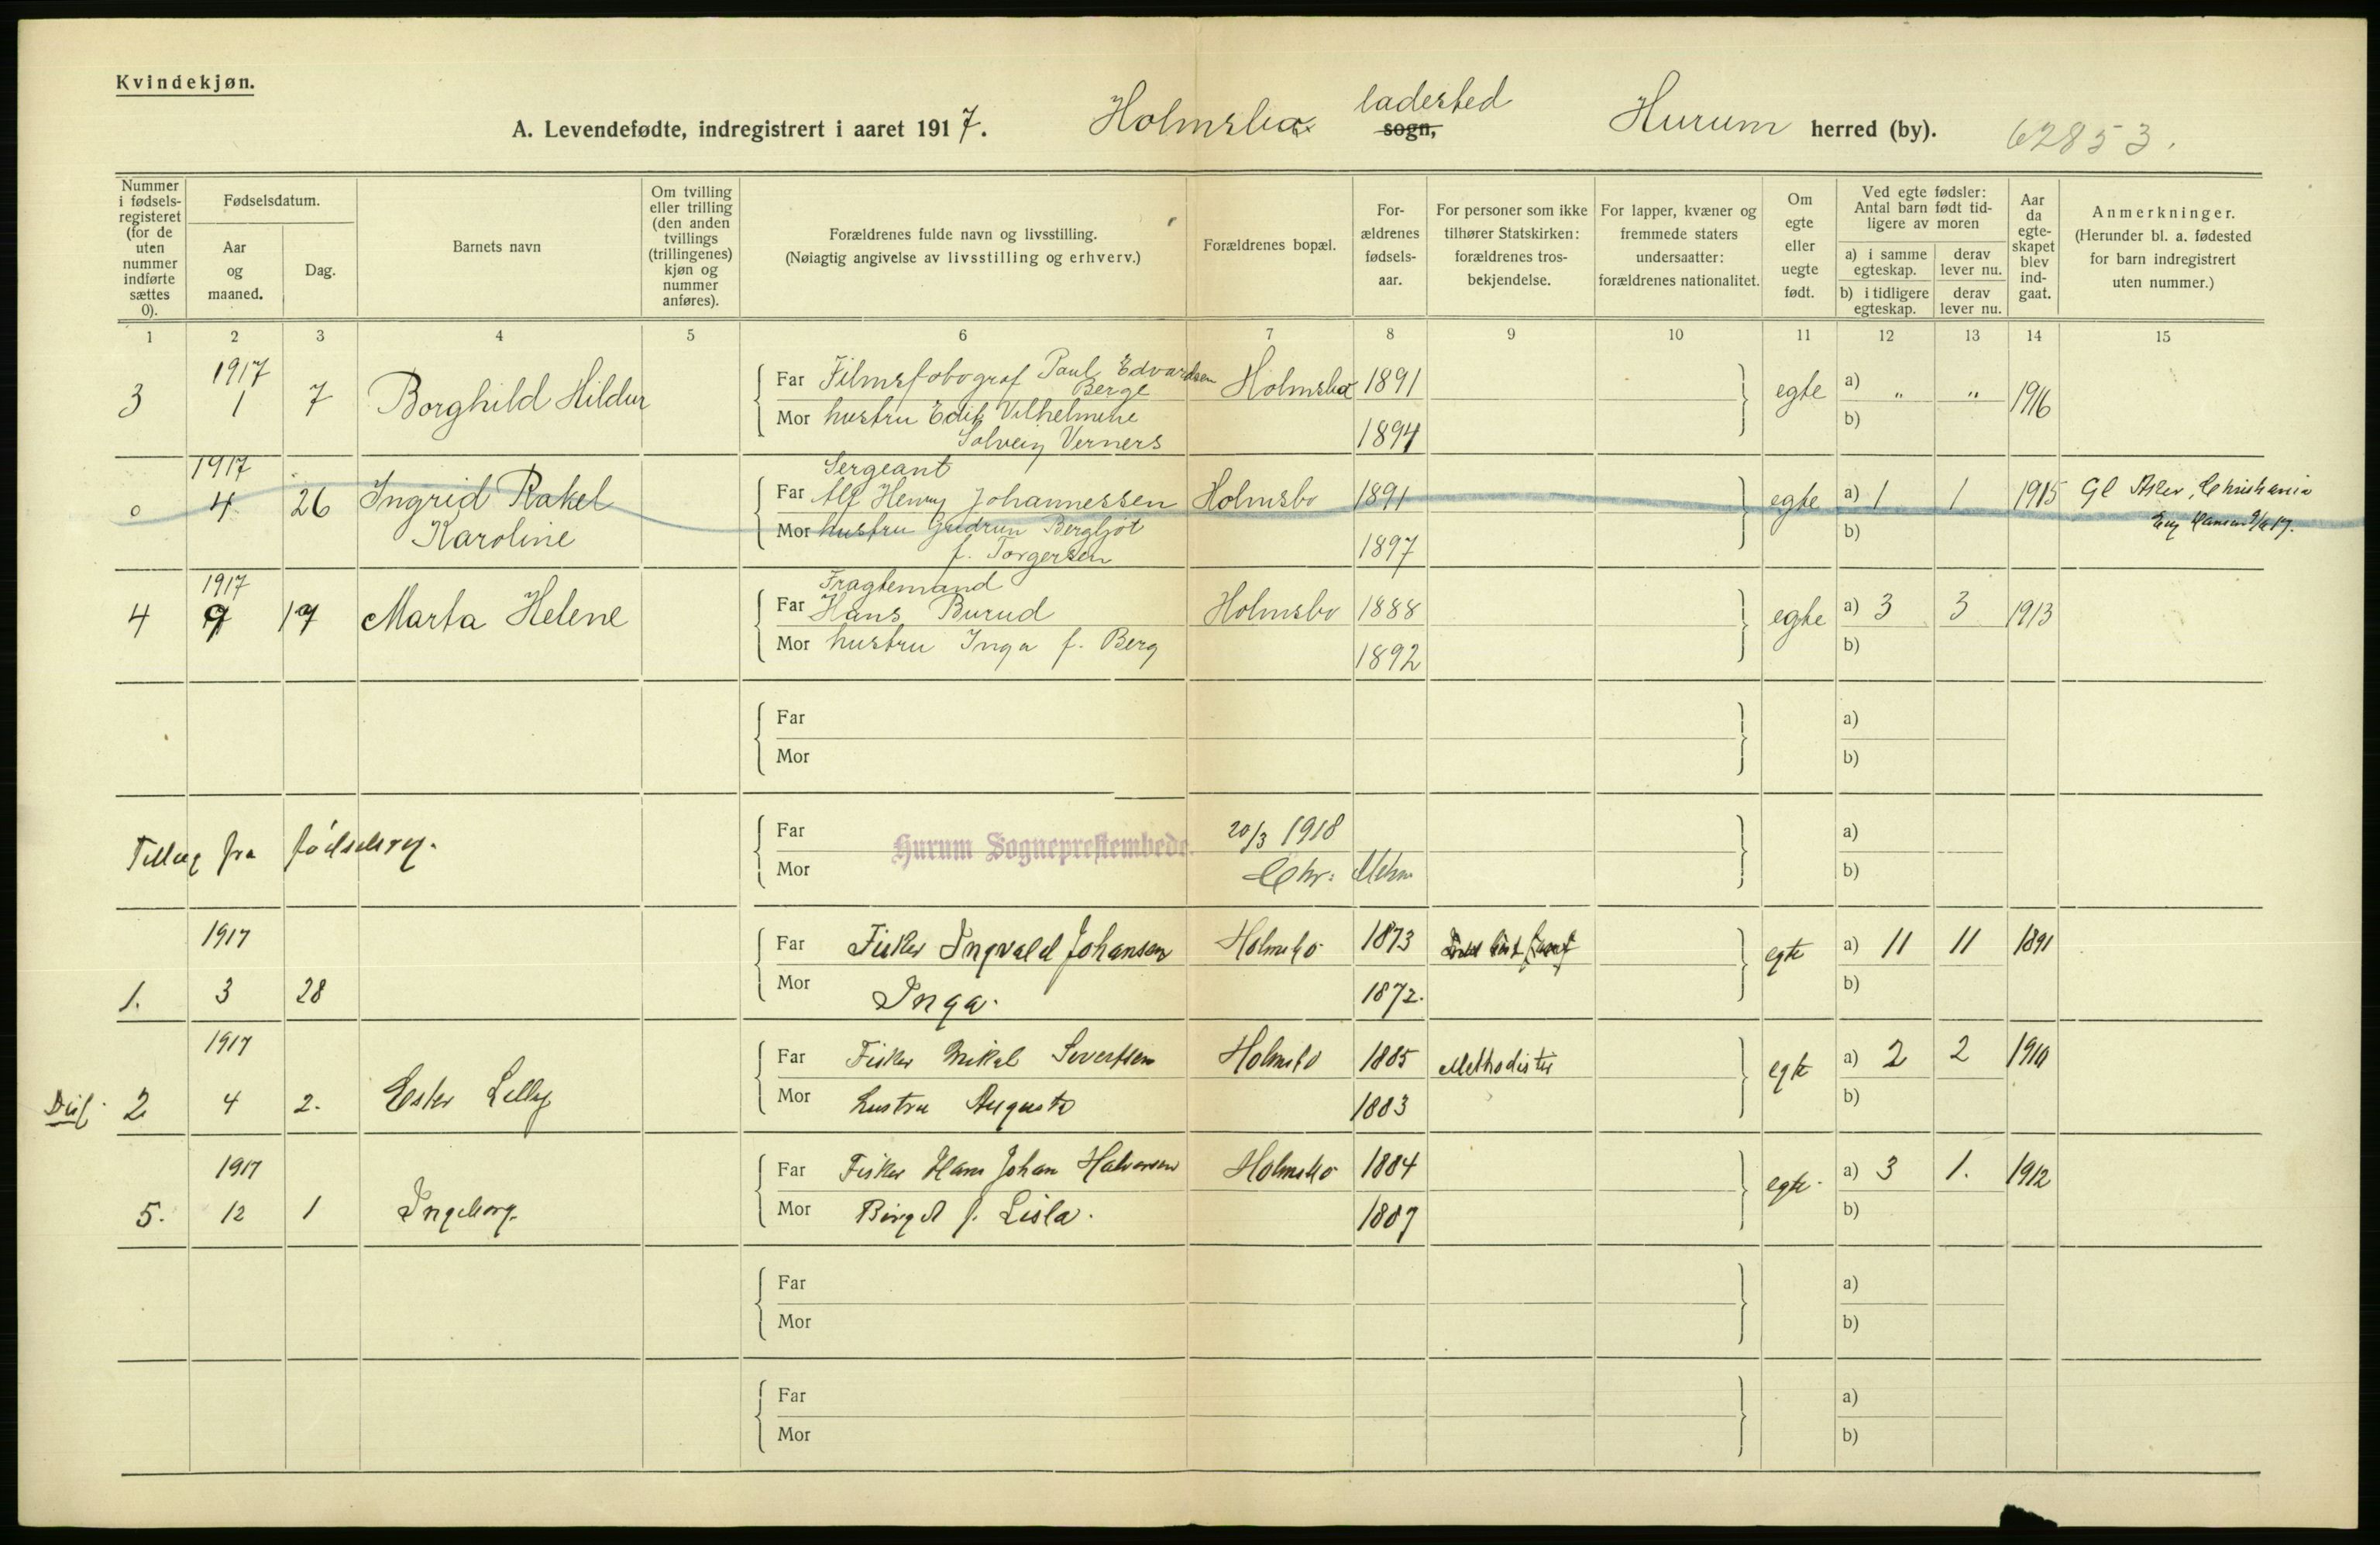 Kvindekjøn.
A. Levendefødte, indregistrert i aaret 1917. Holmsbo ladested sogn, Hurum herred (by). 62853.
Nummer i fødsels-registeret (for de uten nummer indførte sættes 0).
Fødselsdatum.
Aar og maaned.
Dag.
Barnets navn
Om tvilling eller trilling (den anden tvillings (trillingenes) kjøn og nummer anføres).
Forældrenes fulde navn og livsstilling.
(Nøiagtig angivelse av livsstilling og erhverv.)
Forældrenes bopæl.
For-ældrenes fødsels-aar.
For personer som ikke tilhører Statskirken: forældrenes tros-bekjendelse.
For lapper, kvæner og fremmede staters undersaatter: forældrenes nationalitet.
Om egte eller uegte født.
Ved egte fødsler: Antal barn født tid-ligere av moren
a) i samme egteskap.
derav lever nu.
b) i tidligere egteskap.
derav lever nu.
Aar da egte-skapet blev ind-gaat.
Anmerkninger.
(Herunder bl. a. fødested for barn indregistrert uten nummer.)
1 2 3 4 5 6 7 8 9 10 11 12 13 14 15
3 1917 1 7 Borghild Hildur
Far Filmsfotograf Paul Edvardsen Berge Holmsbo 1891 egte a) " " 1916
Mor hustru Edit Vilhelmine Solveig Verners 1894 b)
0 1917 4 26 Ingrid Rakel Karoline
Sergeant
Far Alf Henry Johannessen Holmsbo 1891 egte a) 1 1 1915 Gl Aker, Christiania
Mor hustru Gudrun Bergljot f. Torgersen 1897 b)
4 1917 9 17 Marta Helene
Fragtemand
Far Hans Burud Holmsbo 1888 egte a) 3 3 1913
Mor hustru Inga f. Berg 1892 b)
Far a)
Mor b)
Tillæg fra fødselsreg.
Far Hurum Sogneprestembede. 20/3 1918 a)
Mor Chr. b)
1917
Far Fisker Ingvald Johansen Holmsbo 1873 egte a) 11 11 1891
1. 3 28
Mor Inga. 1872. b)
1917
Far Fisker Mikal Sivertsen Holmsbo 1885 Methodister egte a) 2 2 1910
2 4 2. Ester Lilly
Mor hustru Augusta 1883 b)
1917
Far Fisker Hans Johan Halvorsen Holmsbo 1884 egte. a) 3 1. 1912
5. 12 1 Ingeborg.
Mor Birgit f. Lisla. 1887 b)
Far a)
Mor b)
Far a)
Mor b)